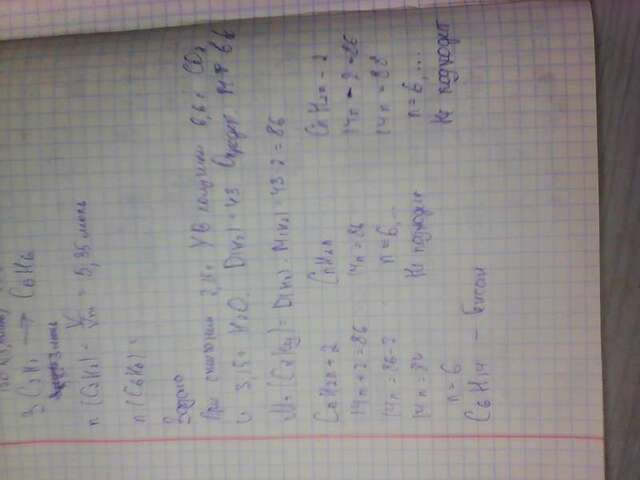 3 C2H2 → C6H6
n (C2H2) = V/Vm = 5,35 моль
n (C6H6) =
Задача
При сжигании УВ получили 6,6 г CO2
и 3,15 г H2O. D(H2) = 43
M (CxHy) = D(H2) · M(H2) 43·2=86
CnH2n+2 CnH2n CnH2n-2
14n+2=86 14n=86 14n-2=86
14n=86-2 n=6,... 14n=88
14n=84 Не подходит n=6,...
n=6 Не подходит
C6H14 -